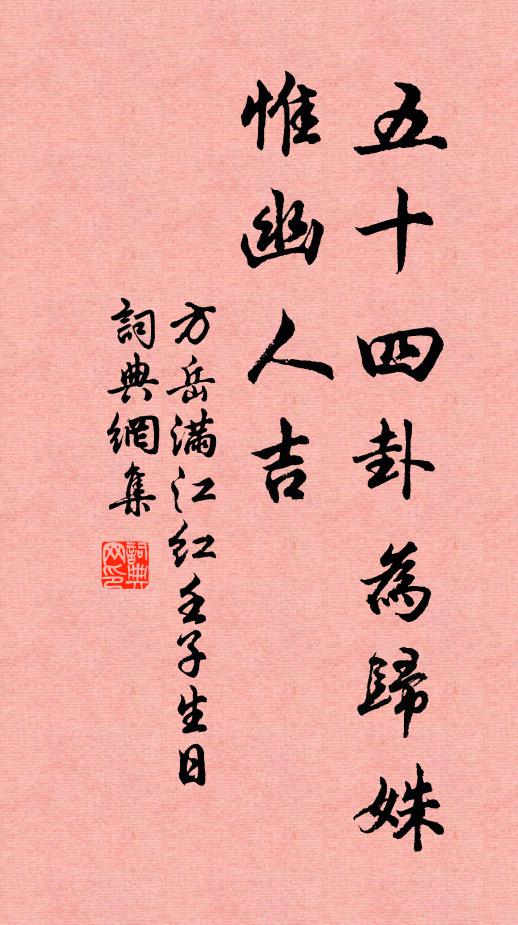 五十四卦為歸姝
惟幽人吉
方岳满江红壬子生日
詞典網集
詞典网印